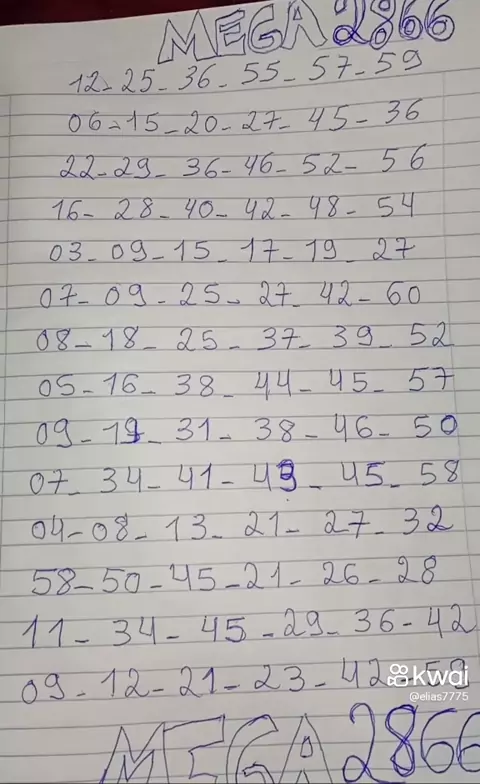 MEGA 2866
12- 25- 36- 55- 57- 59
06-15-20-27-45-36
22-29-36-46-52-56
16-28-40-42-48-54
03-09-15-17-19-27
07-09-25-27-42-60
08-18-25-37-39-52
05-16-38-44-45-57
09-19-31-38-46-50
07-34-41-43-45-58
04-08-13-21-27-32
58-50-45-21-26-28
11-34-45-29-36-42
09-12-21-23-42
kwai
@elias7775
MEGA 2866